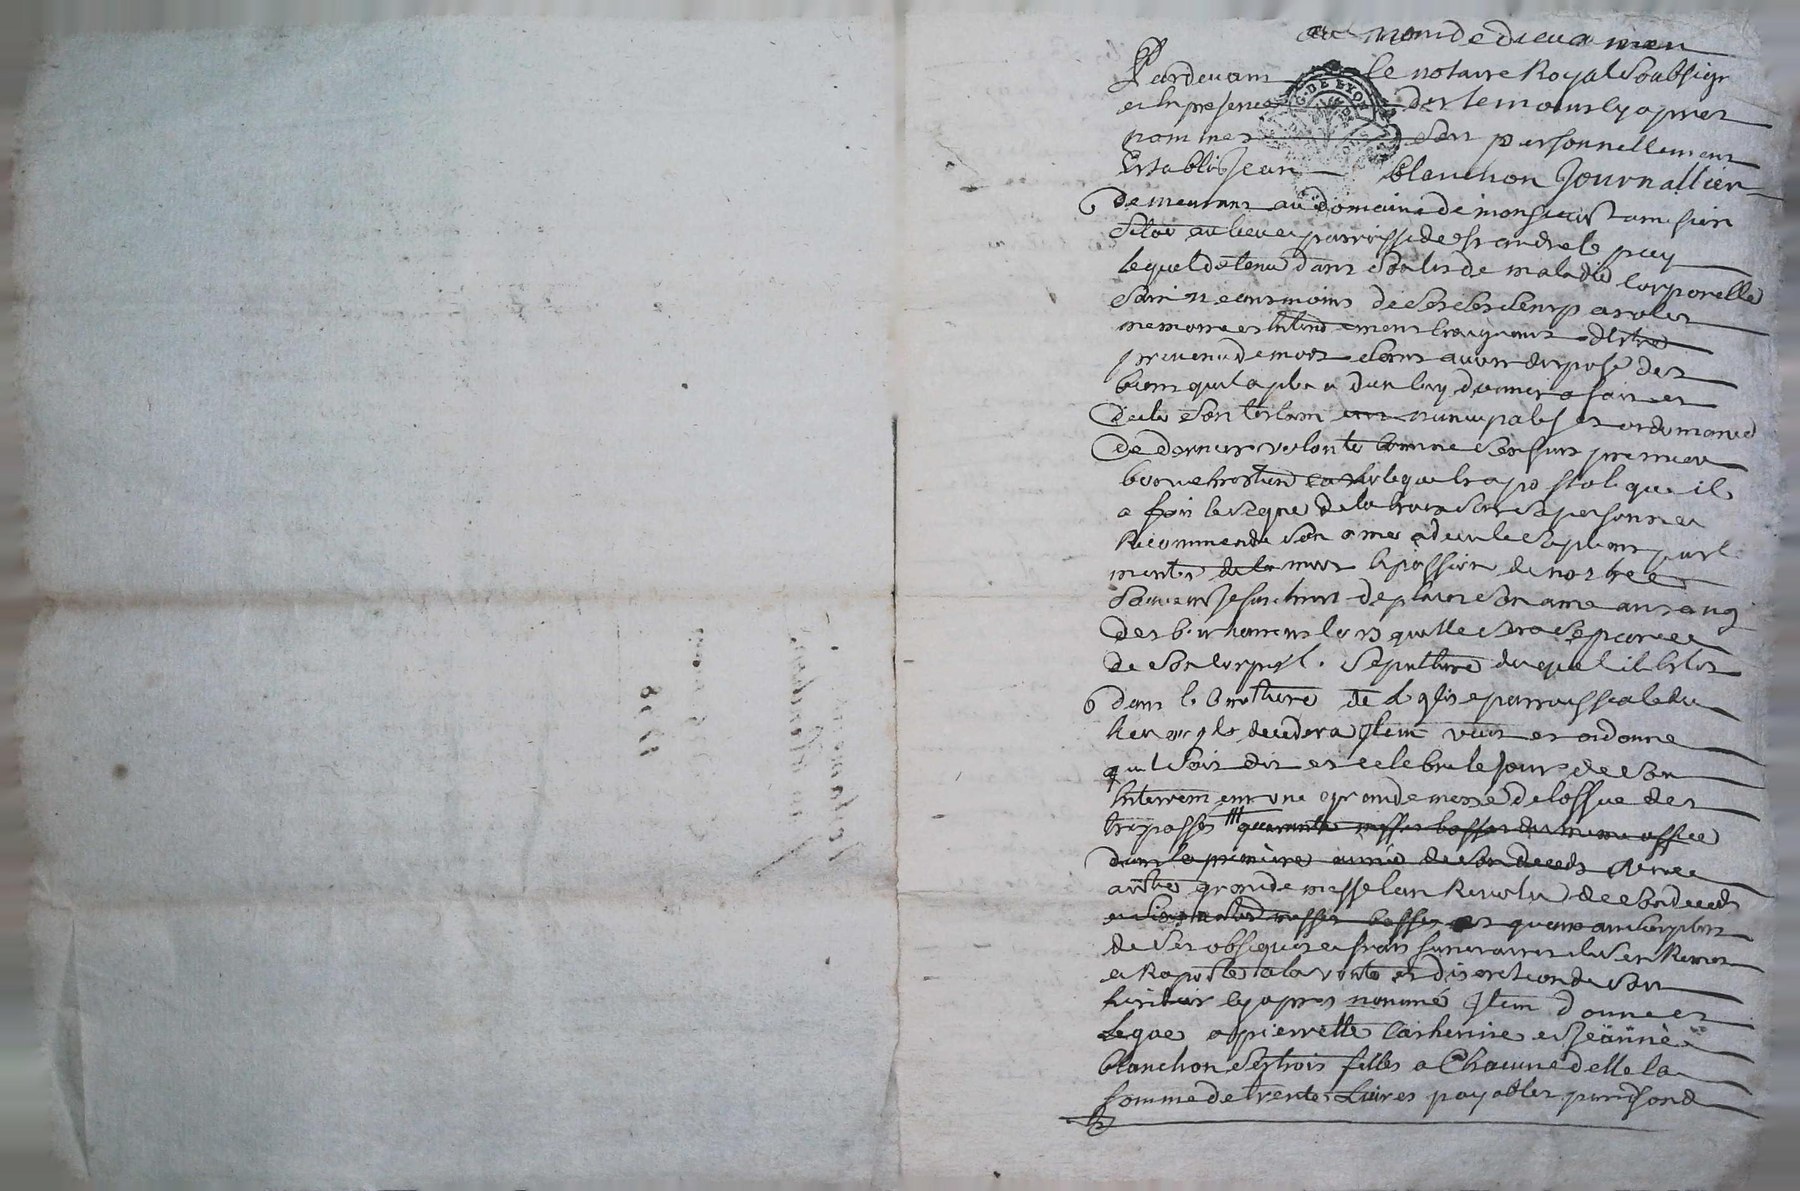 au nom de dieu amen
Pardevant le notaire Royal Soubsigne
et en presence des temoins cy apres
nommes Est personnellement
Establis Jean blanchon Journallier
demeurant au domaine de monsieur
Situé au lieu et parroisse de St andre le puy
lequel detenu dans Son lit de maladie corporelle
Sain neanmoins de Ses Sens parolle
memoire et Entendement Craignant destre
prevenu de mort Sans avoir disposé des
biens quil a plu a dieu luy donner a fait et
dicte Son testam nuncupatif et ordonnance
de derniere volonte comme Sensuit premier
bon chrestien catholique apostolique il
a fait le Signe de la croix Sur Sa personne et
Recommandé Son ame a dieu le Supliant par le
merite de la mort et passion de nostre
Sauveur Jesus Christ de placer Son ame au rang
des bienheureux lors quelle Sera Separee
de Son corps Sepulture duquel il Eslit
dans le Cimetiere de Leglise parroissiale du
lieu ou il decedera Item veut et ordonne
quil Soit dit et celebré le Jour de Son
Enterrement une grande messe de loffice des
trepasses quarante messes basses du meme office
dans la premiere année de Son deceds et une
autre grande messe lan Revolu de Son deceds
et messes basses et quant au Surplus
de Ses obseques et frais funeraires il Sen Remet
et Raporte a la volonté et discretion de Son
heritier cy apres nommé Item donne et
legue a pierrette Catherine et Jeanne
blanchon Ses trois filles a Chacune delle la
Somme de trente Livres payables par Sond